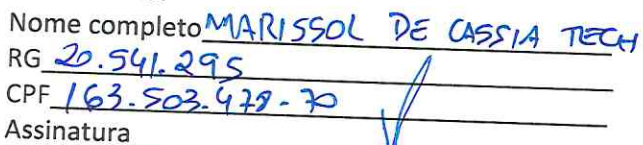 Nome completo MARISSOL DE CASSIA TECH
RG 20.541.295
CPF 163.503.478-70
Assinatura